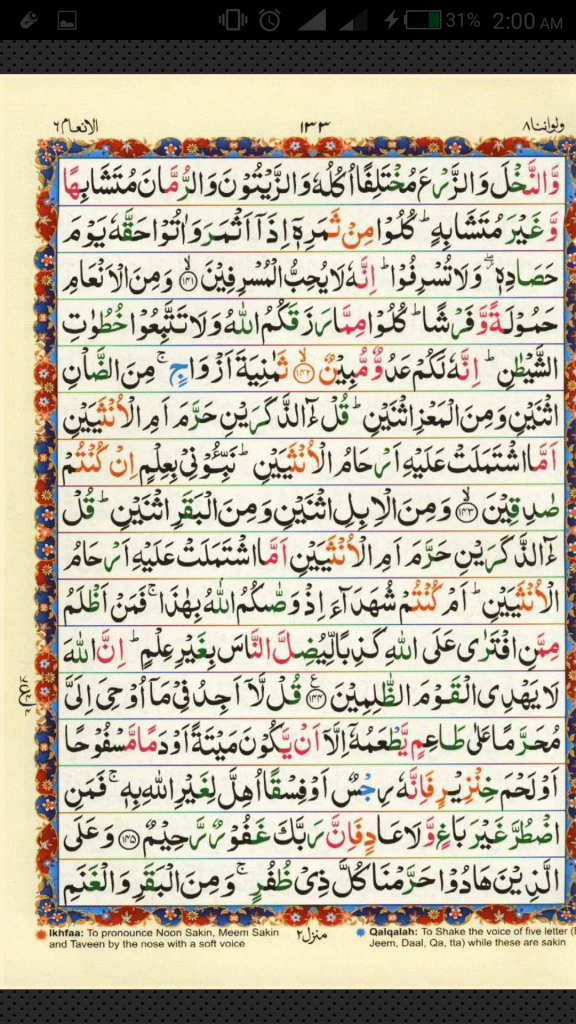 31% 2:00 AM
ولواننا۸ ۱۳۳ الانعام۶
وَّالنَّخْلَ وَالزَّرْعَ مُخْتَلِفًا اُكُلُهٗ وَالزَّيْتُوْنَ وَالرُّمَّانَ مُتَشَابِهًا
وَّغَيْرَ مُتَشَابِهٍ ؕ كُلُوْا مِنْ ثَمَرِهٖۤ اِذَاۤ اَثْمَرَ وَاٰتُوْا حَقَّهٗ يَوْمَ
حَصَادِهٖ ۖ وَلَا تُسْرِفُوْا ؕ اِنَّهٗ لَا يُحِبُّ الْمُسْرِفِيْنَ ۙ﴿۱۴۱﴾ وَمِنَ الْاَنْعَامِ
حَمُوْلَةً وَّفَرْشًا ؕ كُلُوْا مِمَّا رَزَقَكُمُ اللّٰهُ وَلَا تَتَّبِعُوْا خُطُوٰتِ
الشَّيْطٰنِ ؕ اِنَّهٗ لَكُمْ عَدُوٌّ مُّبِيْنٌ ۙ﴿۱۴۲﴾ ثَمٰنِيَةَ اَزْوَاجٍ ۚ مِنَ الضَّاْنِ
اثْنَيْنِ وَمِنَ الْمَعْزِ اثْنَيْنِ ؕ قُلْ ءٰٓالذَّكَرَيْنِ حَرَّمَ اَمِ الْاُنْثَيَيْنِ
اَمَّا اشْتَمَلَتْ عَلَيْهِ اَرْحَامُ الْاُنْثَيَيْنِ ؕ نَبِّـُٔوْنِيْ بِعِلْمٍ اِنْ كُنْتُمْ
صٰدِقِيْنَ ۙ﴿۱۴۳﴾ وَمِنَ الْاِبِلِ اثْنَيْنِ وَمِنَ الْبَقَرِ اثْنَيْنِ ؕ قُلْ
ءٰٓالذَّكَرَيْنِ حَرَّمَ اَمِ الْاُنْثَيَيْنِ اَمَّا اشْتَمَلَتْ عَلَيْهِ اَرْحَامُ
الْاُنْثَيَيْنِ ؕ اَمْ كُنْتُمْ شُهَدَآءَ اِذْ وَصّٰىكُمُ اللّٰهُ بِهٰذَا ۚ فَمَنْ اَظْلَمُ
مِمَّنِ افْتَرٰى عَلَى اللّٰهِ كَذِبًا لِّيُضِلَّ النَّاسَ بِغَيْرِ عِلْمٍ ؕ اِنَّ اللّٰهَ
لَا يَهْدِى الْقَوْمَ الظّٰلِمِيْنَ ﴿۱۴۴﴾ قُلْ لَّاۤ اَجِدُ فِيْ مَاۤ اُوْحِيَ اِلَيَّ
مُحَرَّمًا عَلٰى طَاعِمٍ يَّطْعَمُهٗۤ اِلَّاۤ اَنْ يَّكُوْنَ مَيْتَةً اَوْ دَمًا مَّسْفُوْحًا
اَوْ لَحْمَ خِنْزِيْرٍ فَاِنَّهٗ رِجْسٌ اَوْ فِسْقًا اُهِلَّ لِغَيْرِ اللّٰهِ بِهٖ ۚ فَمَنِ
اضْطُرَّ غَيْرَ بَاغٍ وَّلَا عَادٍ فَاِنَّ رَبَّكَ غَفُوْرٌ رَّحِيْمٌ ﴿۱۴۵﴾ وَعَلَى
الَّذِيْنَ هَادُوْا حَرَّمْنَا كُلَّ ذِيْ ظُفُرٍ ۚ وَمِنَ الْبَقَرِ وَالْغَنَمِ
Ikhfaa: To pronounce Noon Sakin, Meem Sakin
and Taveen by the nose with a soft voice
منزل۲
Qalqalah: To Shake the voice of five letter (
Jeem, Daal, Qa, tta) while these are sakin